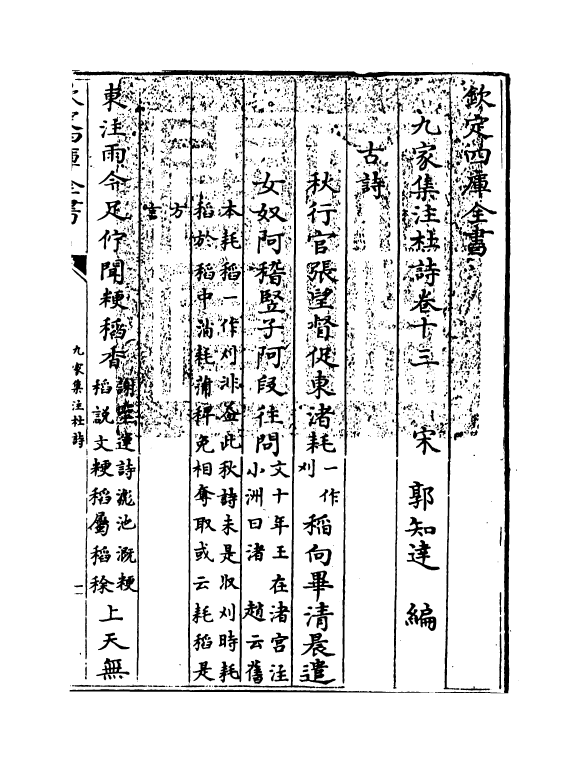 欽定四庫全書
九家集注杜詩卷十三　宋　郭知達　編
古詩
秋行官張望督促東渚耗一作刈稻向畢清晨遣
女奴阿稽豎子阿段往問文十年王在渚宫注小洲曰渚　趙云舊
本耗稻一作刈非葢此秋詩未是収刈時耗稻於稻中蒲耗蒲稗免相奪取或云耗稻是
方言
東注雨今足佇聞粳稻香謝靈運詩滮池溉粳稻説文粳稻屬稻稌上天無
九家集注杜詩